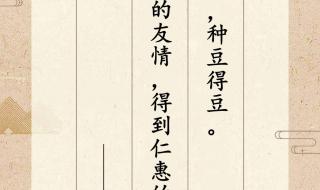 ,种豆得豆。
的友情,得到仁惠的